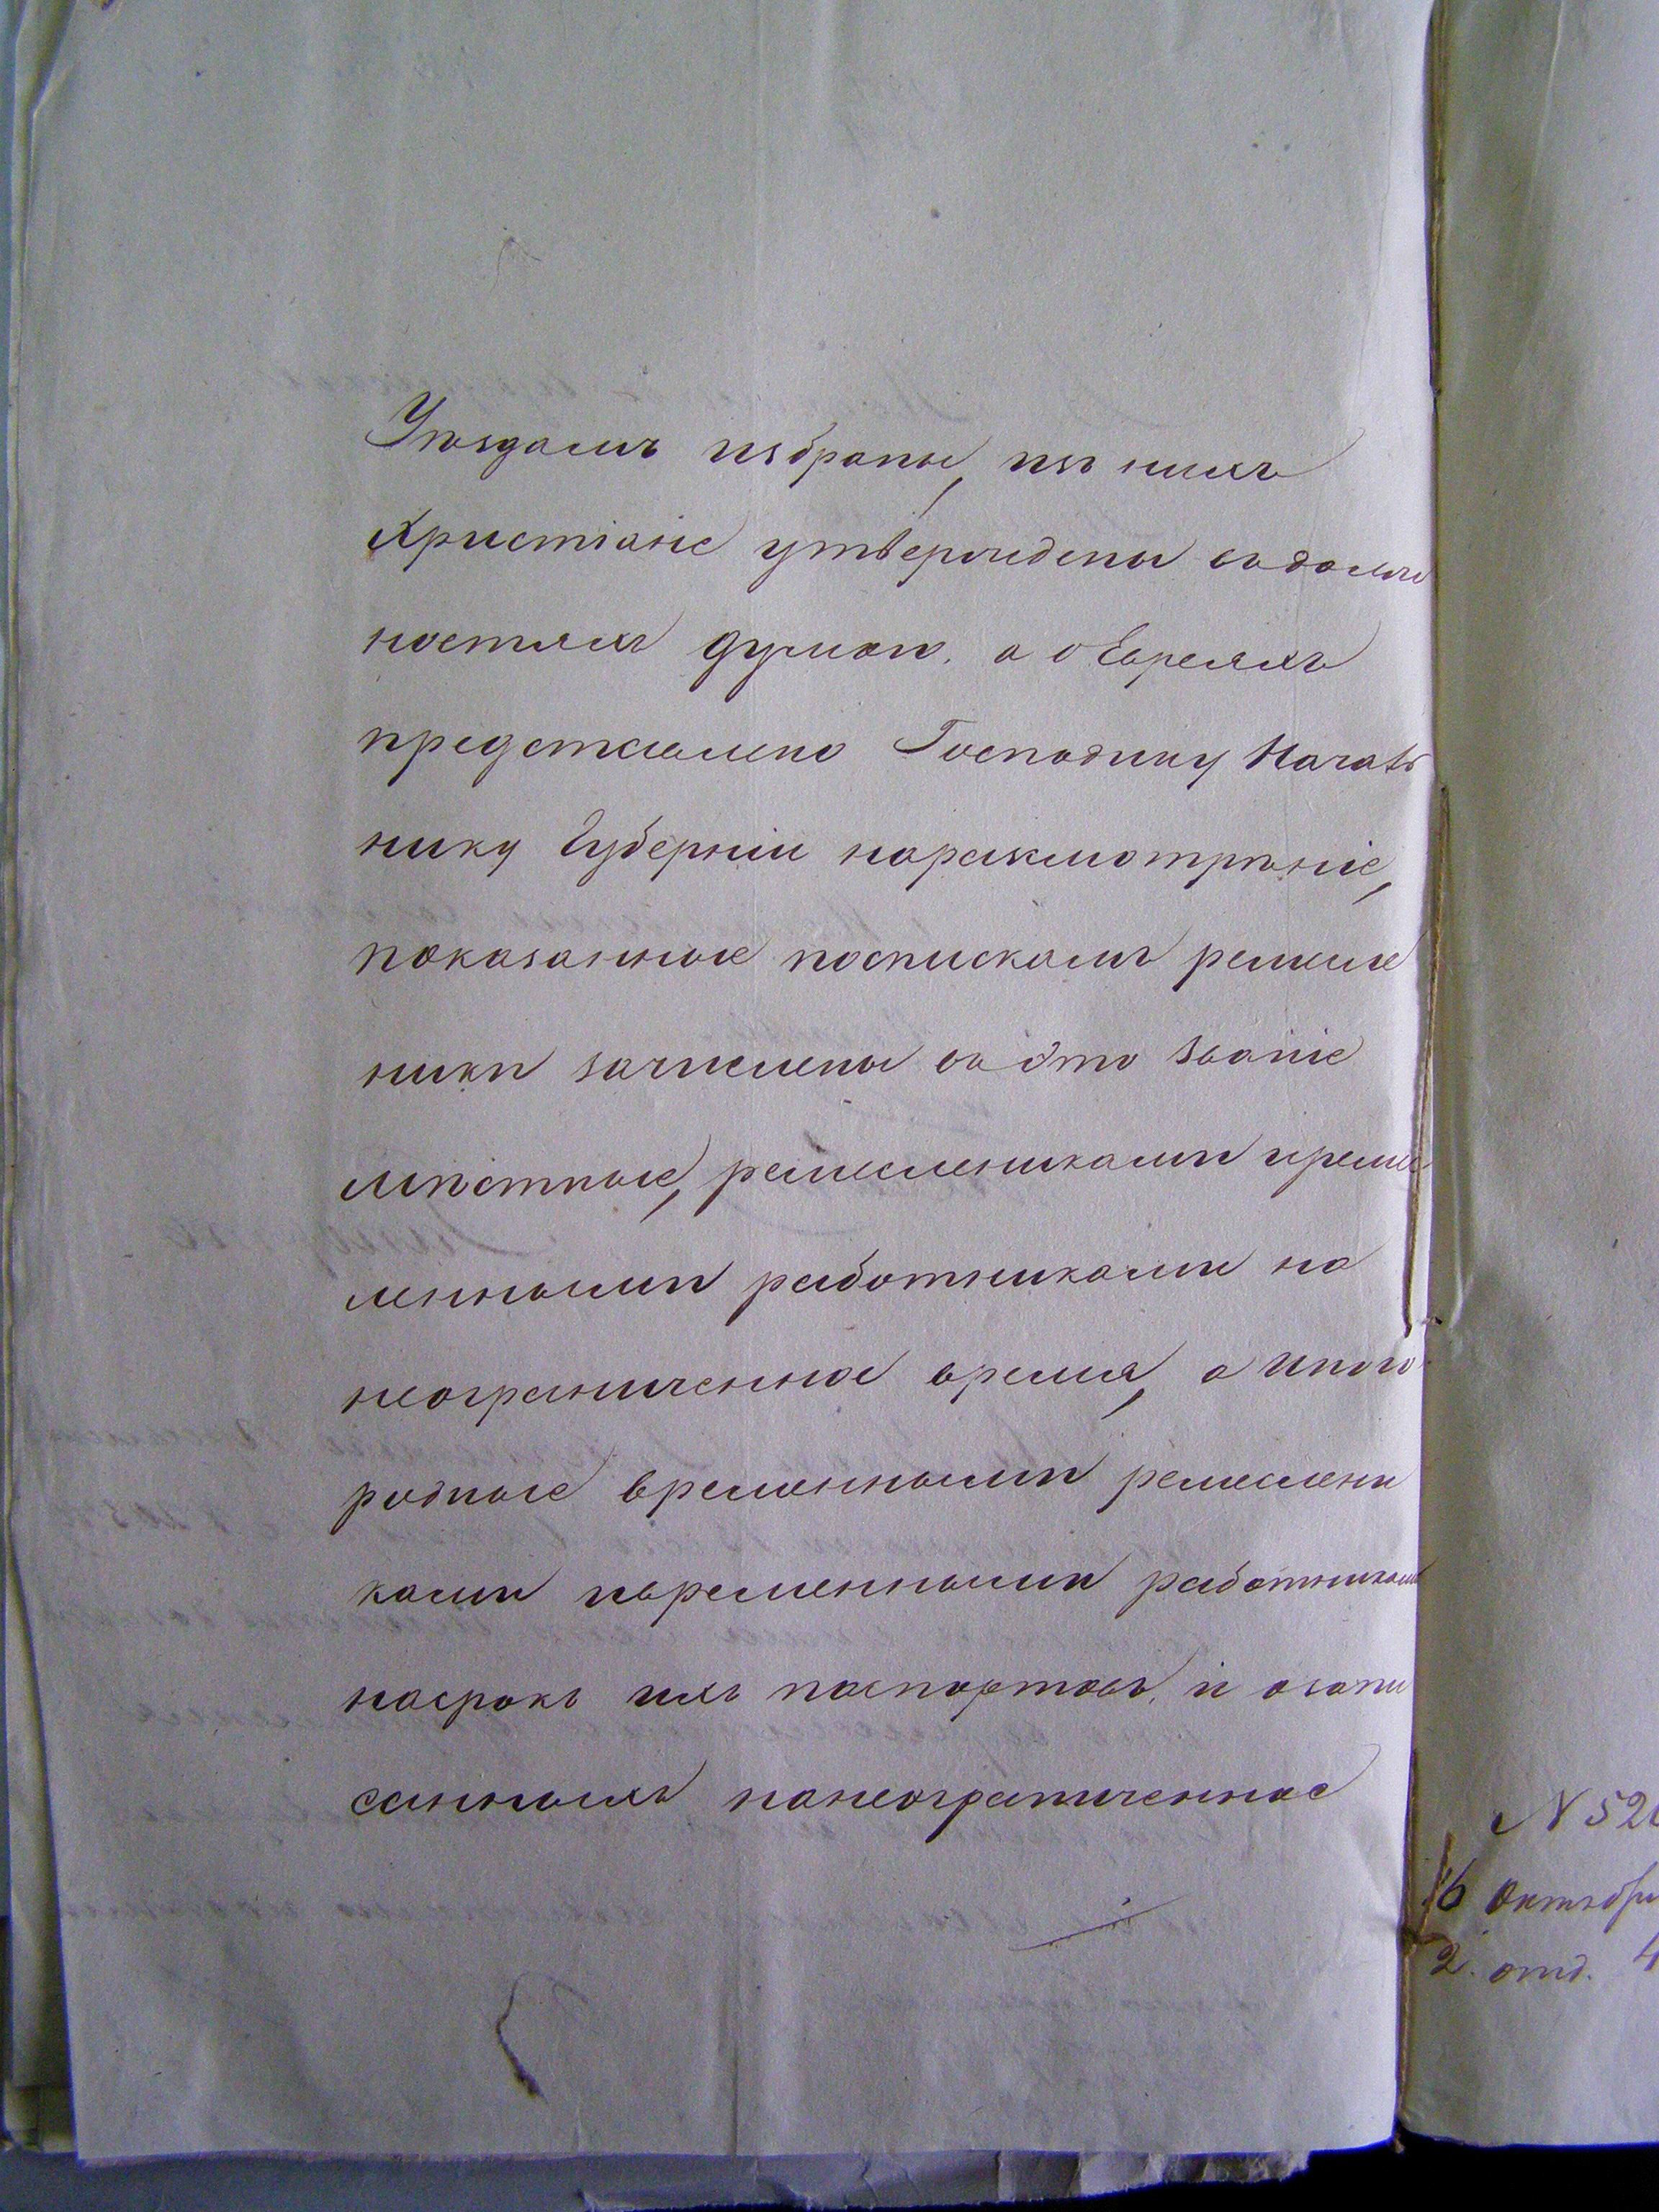 Уѣздамъ избраны, изъ нихъ
Христіане утверждены въ долж
ностяхъ думою. а о Евреяхъ
представлено Господину Началь
нику Губерніи на разсмотрѣніе,
показанные по спискамъ ремесле
ники зачислены въ это званіе
мѣстные, ремеслениками и ремес
ленными работниками на
неограниченное время, а иного
родные временными ремеслени
ками и временными работниками
на срокъ ихъ паспортовъ. и о запи
санныхъ на неограниченное
N 52
16 Октября
2. отд. 4